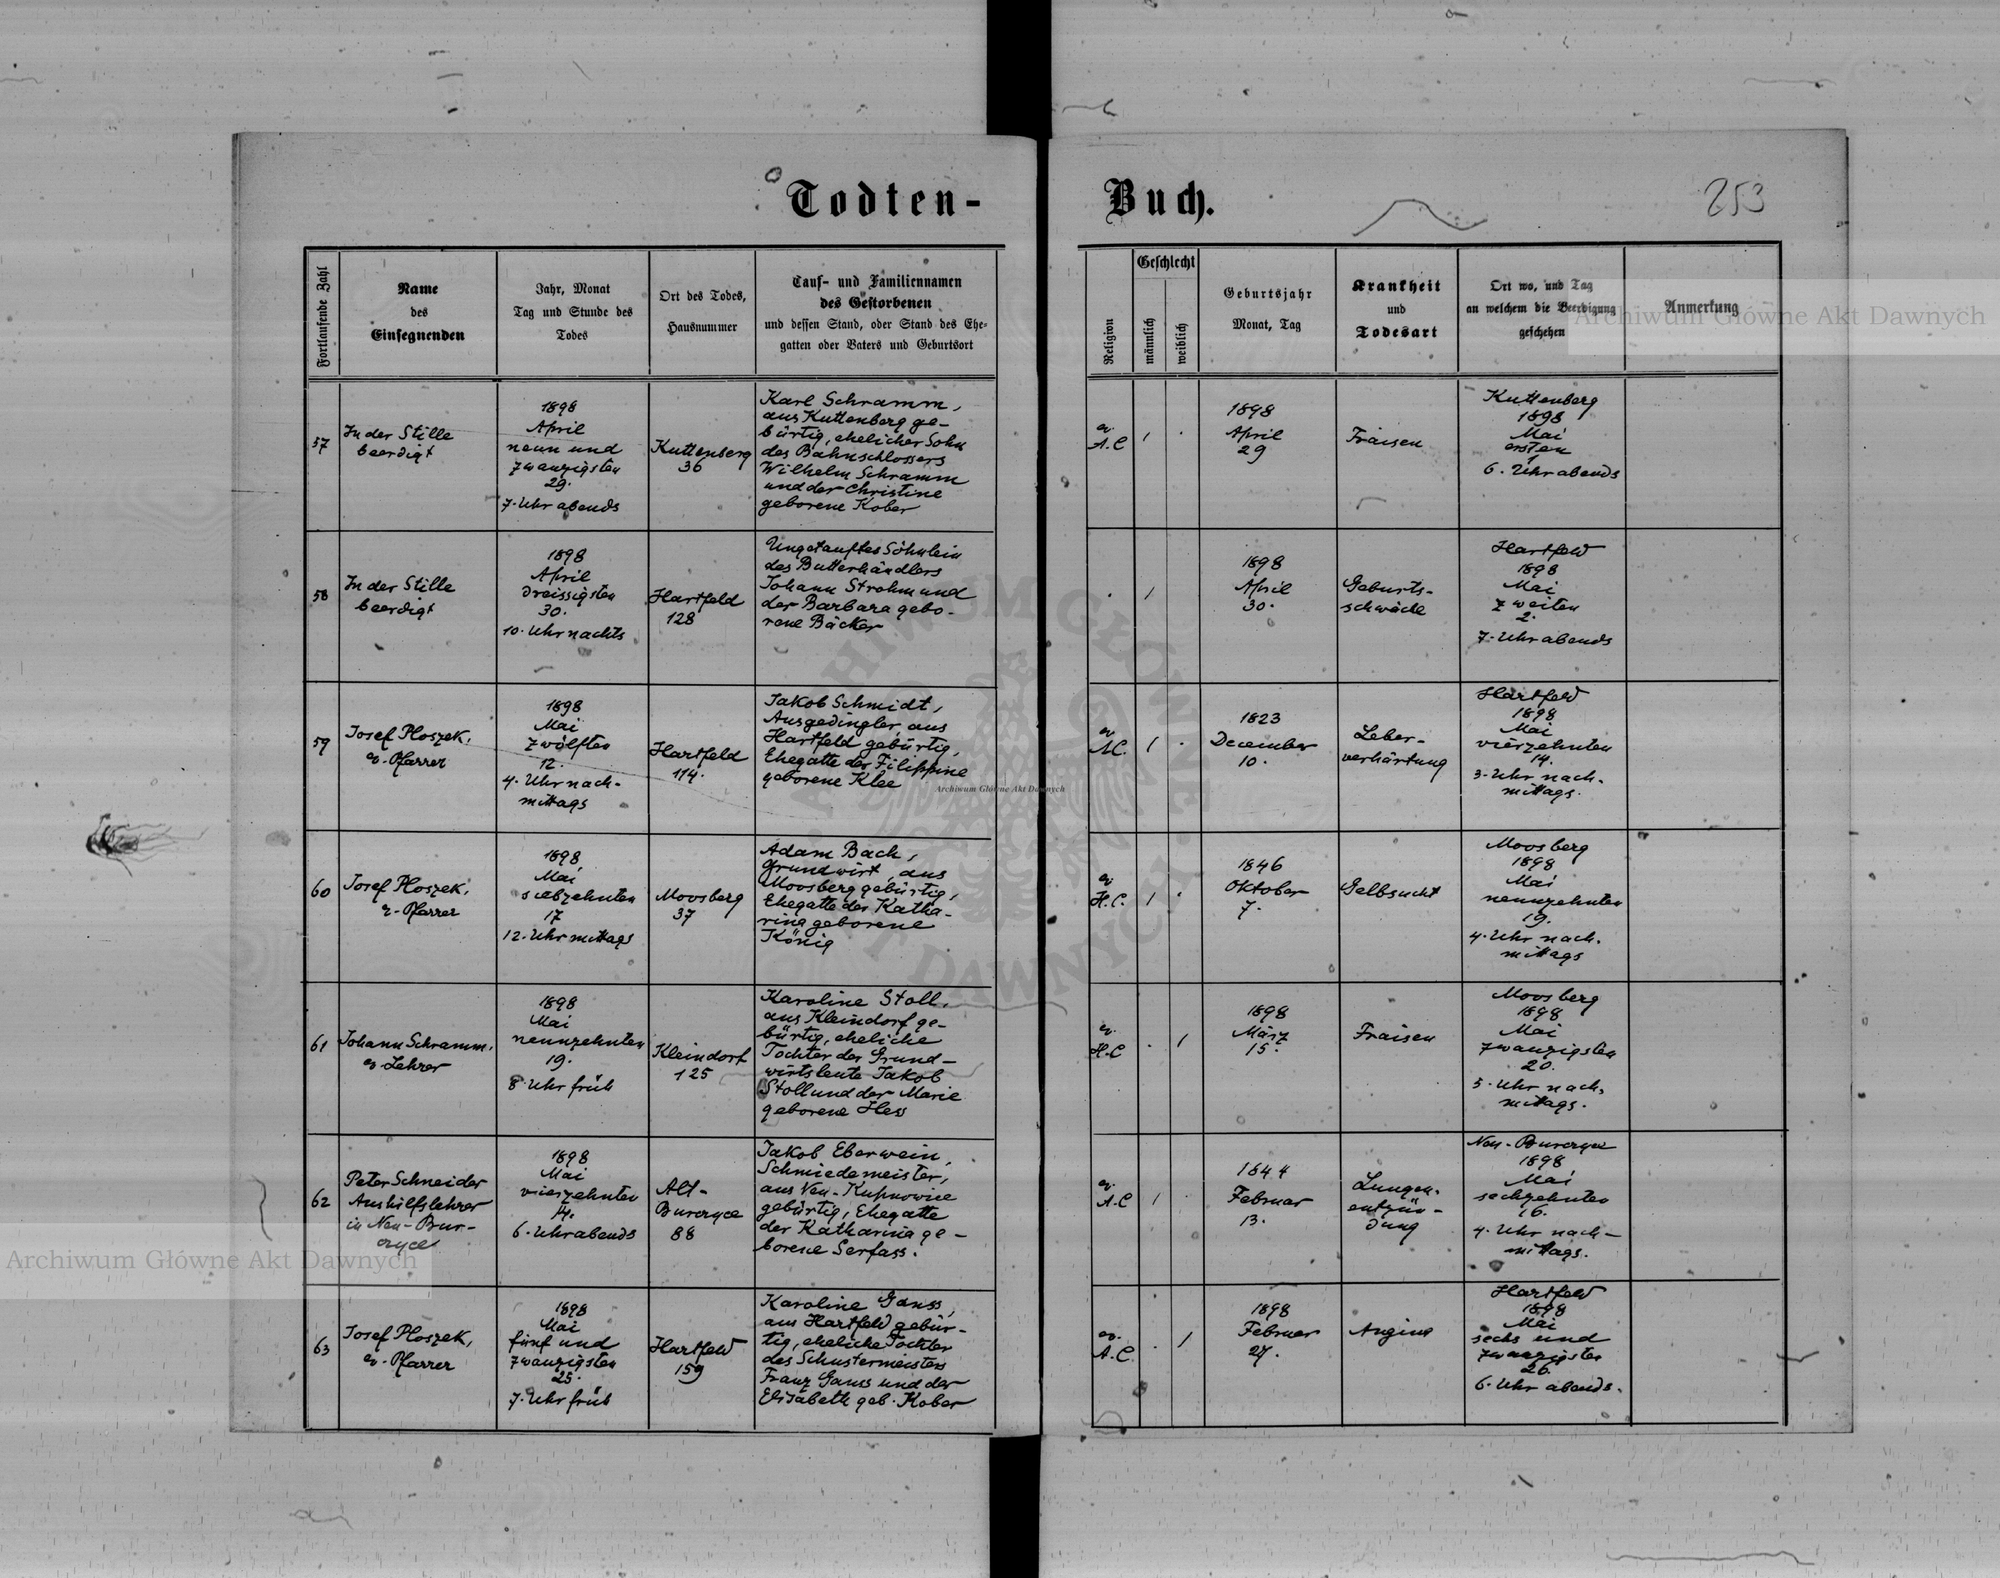 Todten-
Buch.
253
Fortlaufende Zahl
Name
des
Einsegnenden
Jahr, Monat
Tag und Stunde des
Todes
Ort des Todes,
Hausnummer
Tauf- und Familiennamen
des Gestorbenen
und dessen Stand, oder Stand des Ehe-
gatten oder Vaters und Geburtsort
Religion
Geschlecht
männlich
weiblich
Geburtsjahr
Monat, Tag
Krankheit
und
Todesart
Ort wo, und Tag
an welchem die Beerdigung
geschehen
Anmerkung
57
In der Stille
beerdigt
1898
April
neun und
zwanzigsten
29.
7. Uhr abends
Kuttenberg
36
Karl Schramm,
aus Kuttenberg ge-
bürtig, ehelicher Sohn
des Bahnschlossers
Wilhelm Schramm
und der Christine
geborene Kober
ev.
A.C
1898
April
29
Fraisen
Kuttenberg
1898
Mai
ersten
1
6. Uhr abends
58
In der Stille
beerdigt
1898
April
dreissigsten
30.
10. Uhr nachts
Hartfeld
128
Ungetauftes Söhnlein
des Butterhändlers
Johann Strohm und
der Barbara gebo-
rene Bäcker
1898
April
30.
Geburts-
schwäche
Hartfeld
1898
Mai
zweiten
2.
7. Uhr abends
59
Josef Ploszek,
ev. Pfarrer
1898
Mai
zwölften
12.
4. Uhr nach-
mittags
Hartfeld
114.
Jakob Schmidt,
Ausgedingler, aus
Hartfeld gebürtig,
Ehegatte der Filippine
geborene Klee
ev
A.C.
1823
December
10.
Leber-
verhärtung
Hartfeld
1898
Mai
vierzehnten
14.
3. Uhr nach-
mittags.
60
Josef Ploszek,
ev. Pfarrer
1898
Mai
siebzehnten
17
12. Uhr mittags
Moosberg
37
Adam Bach,
Grundwirt, aus
Moosberg gebürtig,
Ehegatte der Katha-
rina geborene
König
ev
H.C.
1846
Oktober
7.
Gelbsucht
Moosberg
1898
Mai
neunzehnten
19.
4. Uhr nach-
mittags
61
Johann Schramm,
ev. Lehrer
1898
Mai
neunzehnten
19.
8. Uhr früh
Kleindorf
125
Karoline Stoll,
aus Kleindorf ge-
bürtig, eheliche
Tochter der Grund-
wirtsleute Jakob
Stoll und der Marie
geborene Hess
ev.
H.C
1898
März
15.
Fraisen
Moosberg
1898
Mai
zwanzigsten
20.
5. Uhr nach-
mittags.
62
Peter Schneider
Aushilfslehrer
in Neu-Bur-
czyce
1898
Mai
vierzehnten
14.
6. Uhr abends
Alt-
Burczyce
88
Jakob Eberwein,
Schmiedemeister,
aus Neu-Kupnowice
gebürtig, Ehegatte
der Katharina ge-
borene Serfass.
ev.
A.C
1844
Februar
13.
Lungen-
entzün-
dung
Neu-Burczyce
1898
Mai
sechzehnten
16.
4. Uhr nach-
mittags.
63
Josef Ploszek,
ev. Pfarrer
1898
Mai
fünf und
zwanzigsten
25.
7. Uhr früh
Hartfeld
159
Karoline Gauss,
aus Hartfeld gebür-
tig, eheliche Tochter
des Schustermeisters
Franz Gauss und der
Elisabeth geb. Kober
ev.
A.C.
1898
Februar
27.
Angina
Hartfeld
1898
Mai
sechs und
zwanzigsten
26.
6. Uhr abends.
Archiwum Główne Akt Dawnych
Archiwum Główne Akt Dawnych
Archiwum Główne Akt Dawnych
ARCHIWUM GŁÓWNE AKT DAWNYCH